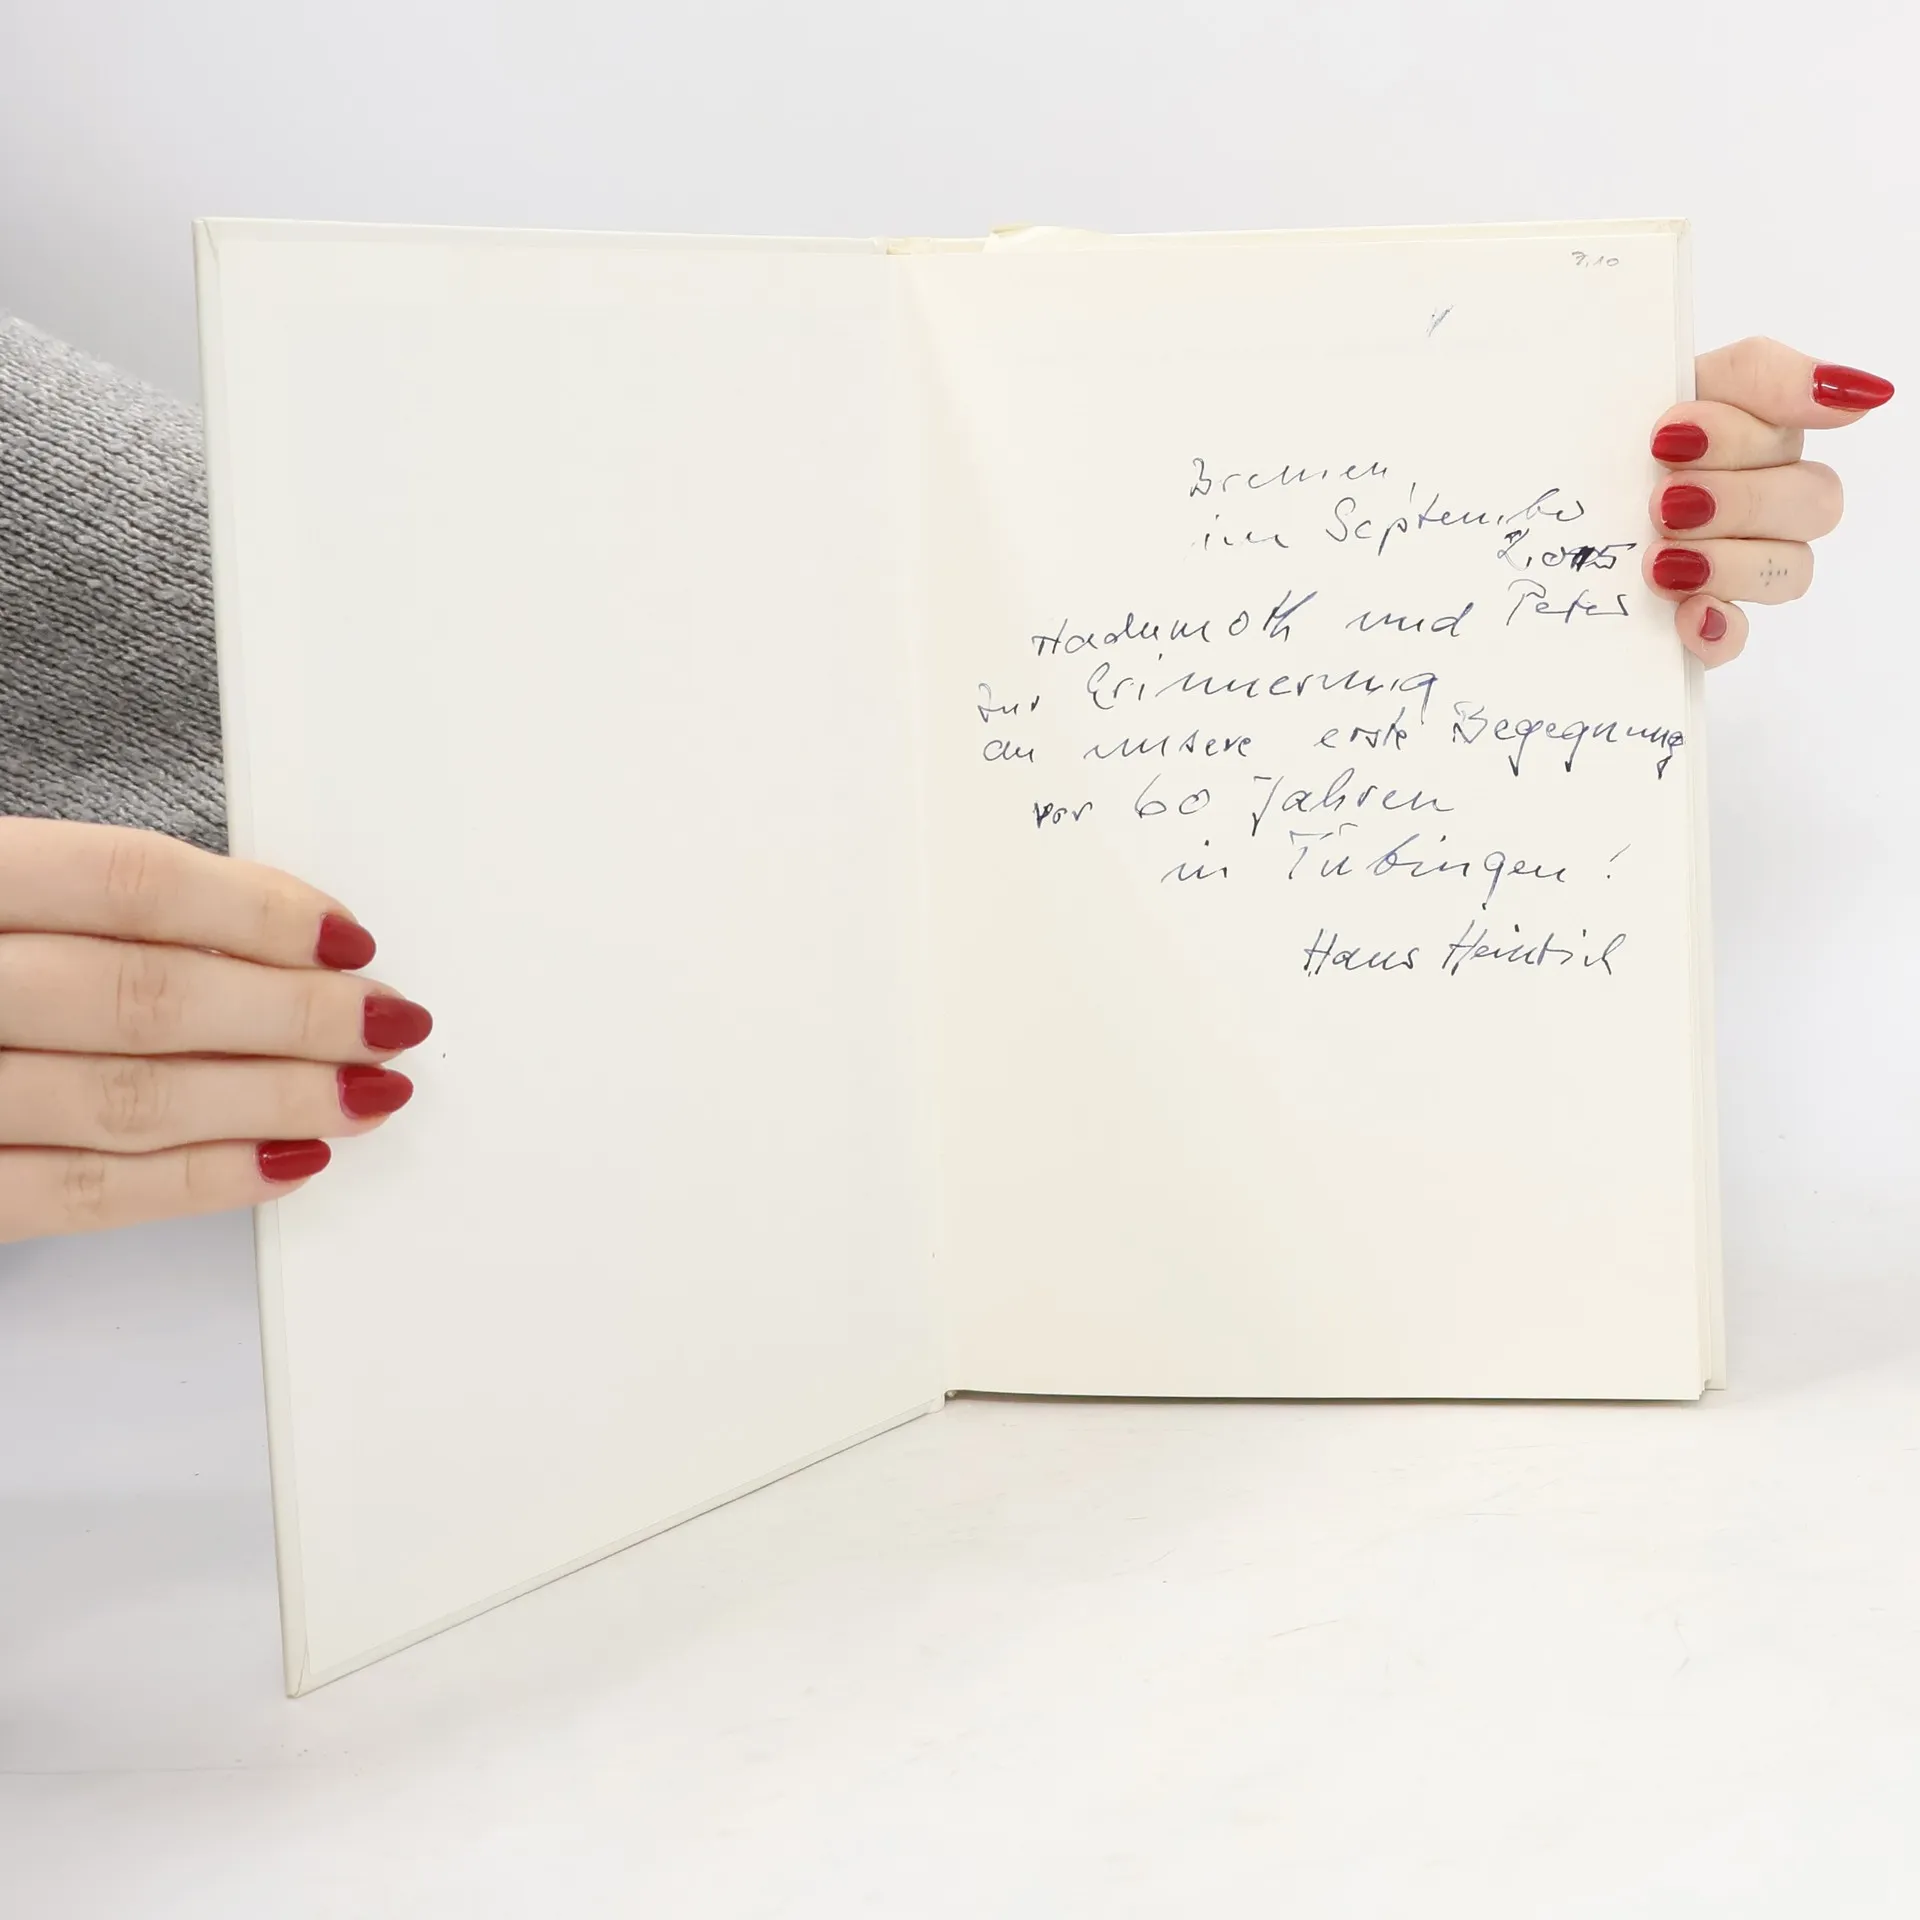 7.10
Bremen,
im September
2.015
Hadumoth und Peter
zur Erinnerung
an unsere erste Begegnung
vor 60 Jahren
in Tübingen!
Hans